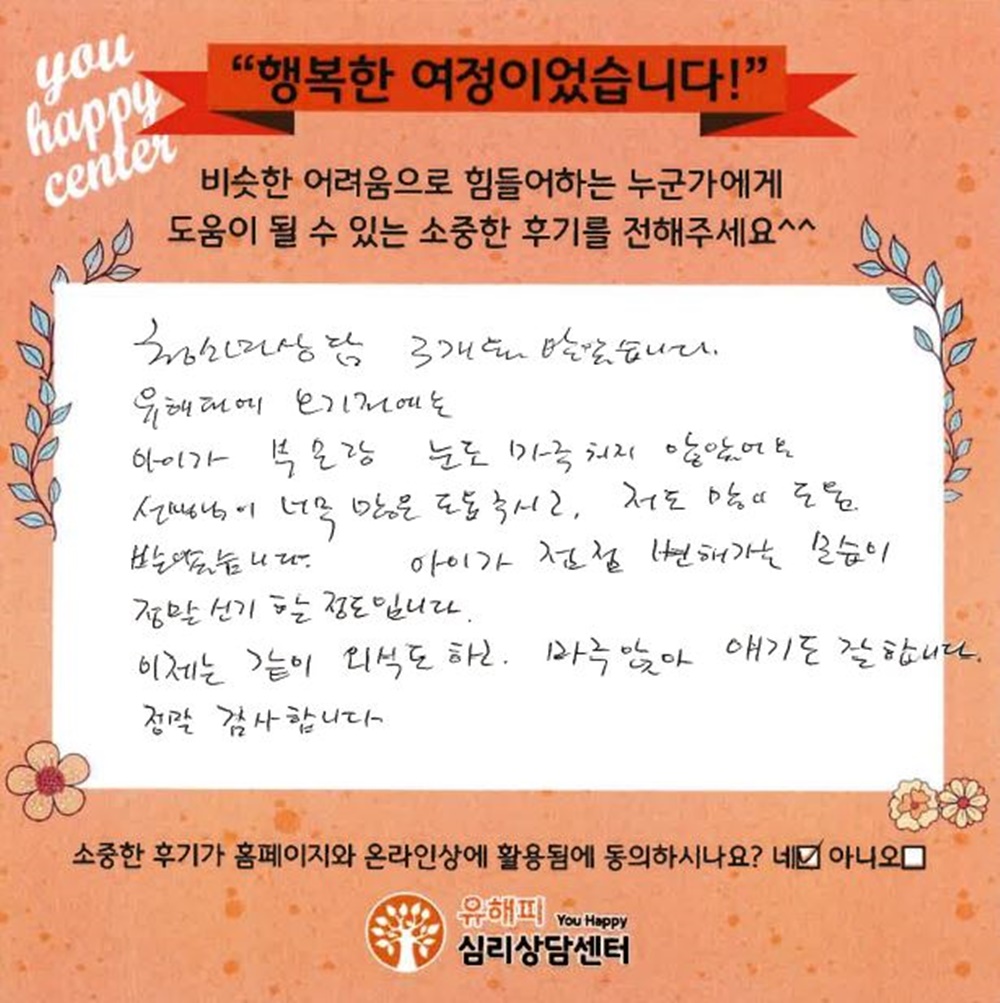 you
happy
center
“행복한 여정이었습니다!”
비슷한 어려움으로 힘들어하는 누군가에게
도움이 될 수 있는 소중한 후기를 전해주세요^^
청소년상담 3개월 받았습니다.
유해피에 오기전에는
아이가 부모랑 눈도 마주치지 않았어요
선생님이 너무 많은 도움 주시고, 저도 많이 도움
받았습니다. 아이가 점점 변해가는 모습이
정말 신기할 정도입니다.
이제는 같이 외식도 하고. 마주앉아 얘기도 잘합니다.
정말 감사합니다
소중한 후기가 홈페이지와 온라인상에 활용됨에 동의하시나요? 네☑ 아니오☐
유해피 You Happy
심리상담센터